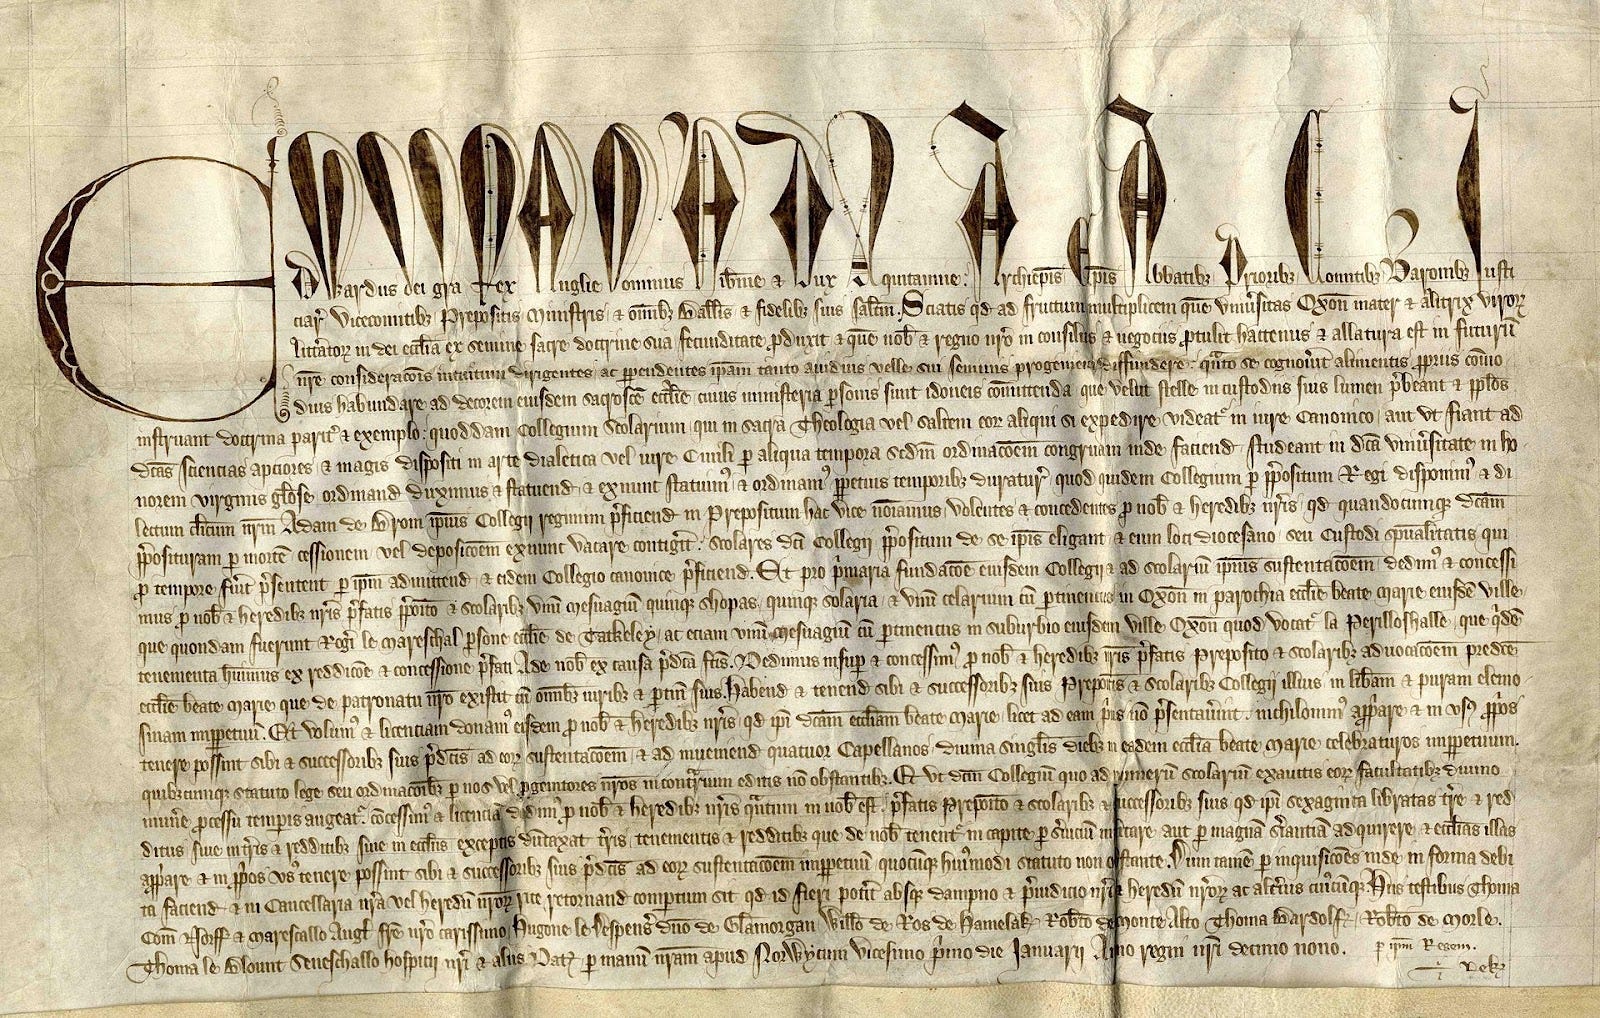 Edwardus dei gra Rex Anglie Dominus Hibnie & Dux Aquitannie. Archiepis Epis Abbatibz Prioribz Comitibz Baronibz Justi
ciar Vicecomitibz Prepositis Ministris & omibz Ballis & fidelibz suis saltm. Sciatis qd ad fructum multiplicem quem Univsitas Oxon mater & alitrix virorz
littatorz in dei ecclia ex semine sacre doctrine sua fecunditate pduxit & quem nob & regno nro in consiliis & negociis ptulit hactenus & allatura est in futurum
nre consideracois intuitum dirigentes ac ppendentes ipam tanto avidius velle sui seminis progeniem diffundere qnto se cognovit alimentis ppriis como
dius habundare ad decorem eiusdem sacroste ecclie cuius ministeria psonis sunt idoneis comittenda que velut stelle in custodiis suis lumen pbeant & pplos
instruant doctrina parit & exemplo quoddam Collegium Scolarium qui in sacra Theologia vel saltem eor aliqui si expedire videat in iure Canonico aut ut fiant ad
dcas scientias apciores & magis dispositi in arte dialetica vel iure Civili p aliqua tempora scdm ordinacoem congruam inde faciend studeant in dca Univsitate in ho
norem virginis gliose ordinand duximus & statuend & exnunt statuim & ordinam ppetuis temporibz duratur quod quidem Collegium p ppositum Regi disponim & di
lectum clicum nrm Adam de Brom ipius Collegii regimini pficiend in Prepositum hac vice noiamus volentes & concedentes p nob & heredibz nris qd quandocumqz dcam
pposituram p morte cessionem vel deposicoem exnunt vacare contigit Scolares dci Collegii ppositum de se ipis eligant & eum loci diocesano seu Custodi spualitatis qui
p tempore fuit psentent p ipm admittend & eidem Collegio canonice pficiend. Et pro pmaria fundacoe eiusdem Collegii & ad scolariu ipius sustentacoem dedim & concessi
mus p nob & heredibz nris pfatis pposito & scolaribz unu mesuagiu quinqz shopas quinqz solaria & unu celarium cu ptinenciis in Oxon in parochia ecclie beate marie eiusde ville
que quondam fuerunt Rogi le Mareschal psone ecclie de Tatkeley ac etiam unu mesuagiu cu ptinenciis in suburbio eiusdem ville Oxon quod vocat la Perilloshalle que qidem
tenementa huimus ex reddicoe & concessione pfati Ade nob ex causa pdca fcis. Dedimus insup & concessim p nob & heredibz nris pfatis Preposito & scolaribz advocacoem predce
ecclie beate Marie que de patronatu nro existit cu omibz iuribz & ptin suis. Habend & tenend sibi & successoribz suis Prepositis & scolaribz Collegii illius in libam & puram elemo
sinam impetuu. Et volum & licenciam donam eisdem p nob & heredibz nris qd ipi dcam eccliam beate Marie licet ad eam pus no psentavint nichilomin appare & in us ppos
tenere possint sibi & successoribz suis pdcis ad eor sustentacoem & ad inveniend quatuor Capellanos divina singlis diebz in eadem ecclia beate Marie celebraturos impetuum
quibuscumqz statuto lege seu ordinacoibz p nos vel pgenitores nros in contrium editis no obstantibz. Et ut dcm Collegiu quo ad numeru scolariu exauctis eor facultatibz divino
munere pcessu tempis augeat concessim & licencia dedim p nob & heredibz nris qntum in nob est pfatis Preposito & scolaribz & successoribz suis qd ipi sexaginta libratas tre & red
ditus sive in tris & redditibz sive in ecclis exceptis dutaxat tris tenementis & redditibz que de nob tenent in capite p sviciu militare aut p magnam siantiam adquirere & ecclias illas
appare & in ppos us tenere possint sibi & successoribz suis pdcis ad eor sustentacoem impetuum quocuqz huimodi statuto non obstante. Dum tamen p inquisicoes inde in forma debi
ta faciend & in Cancellaria nra vel heredu nror rite retornand comptum sit qd id fieri potit absqz dampno & piudicio nri & heredu nror ac altius cuiuscuqz. Hiis testibus Thoma
Com Norff & Marescallo Angl fre nro carissimo Hugone le Despens dno de Glamorgan Willo de Ros de Hamelak Robto de Monte Alto Thoma Bardolf Robto de Morle
Thoma le Blount Senescallo hospicii nri & aliis Dat p manum nram apud Norwycum vicesimo primo die Januarii Anno regni nri decimo nono.
p ipm Regem.